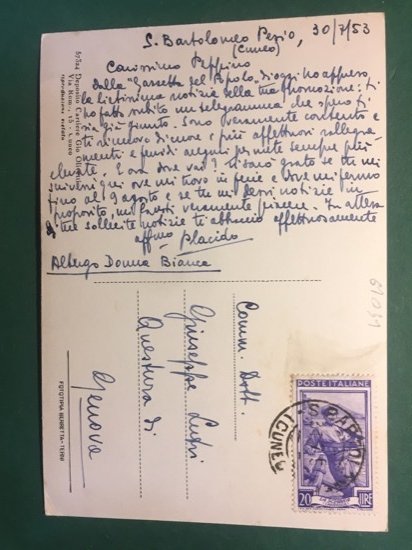 S. Bartolomeo Pesio, 30/7/53
(Cuneo)
Carissimo Peppino
dalla "Gazzetta del Popolo" di oggi ho appreso
la lietissima notizia della tua promozione: ti
ho fatto subito un telegramma che spero ti
sia già giunto. Sono veramente contento e
ti rinnovo di cuore i più affettuosi rallegra-
menti e fervidi auguri per mete sempre più
elevate. E ora dove vai? Ti sarò grato se tu mi
scrivessi qui ove mi trovo in ferie e dove mi fermo
fino al 9 agosto e se tu mi dessi notizie in
proposito, mi faresti veramente piacere. In attesa
di sollecite notizie ti abbraccio affettuosamente
affmo Placido
Albergo Donna Bianca
Comm. Dott.
Giuseppe
Questura di
Genova
61091
57824 Deposito Cartiere Gio
Via Roma, 15 - Cuneo
riproduzione vietata
FOTOTIPIA BERRETTA - TERNI
POSTE ITALIANE
20 LIRE
S. BARTOL
(CUNEO)